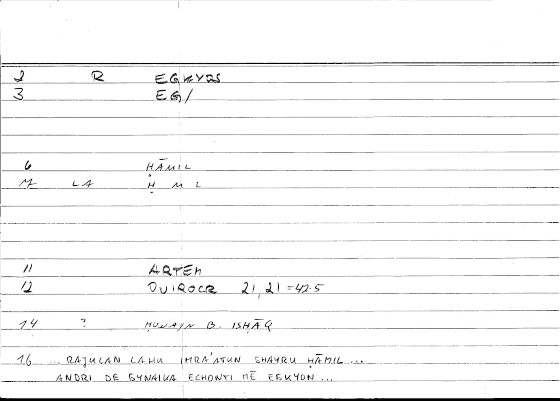 2 R EGKYOS
3 EG/
6 ḤĀMIL
M LA Ḥ M L
11 ARTEM
12 OUIROCR 21, 21 = 42.5
14 ? ḤUNAYN B. ISḤĀQ
16 ... RAJULAN LAHU IMRA'ATUN GHAYRU ḤĀMIL ...
ANDRI DE GYNAIKA ECHONTI MĒ EGKYON ...